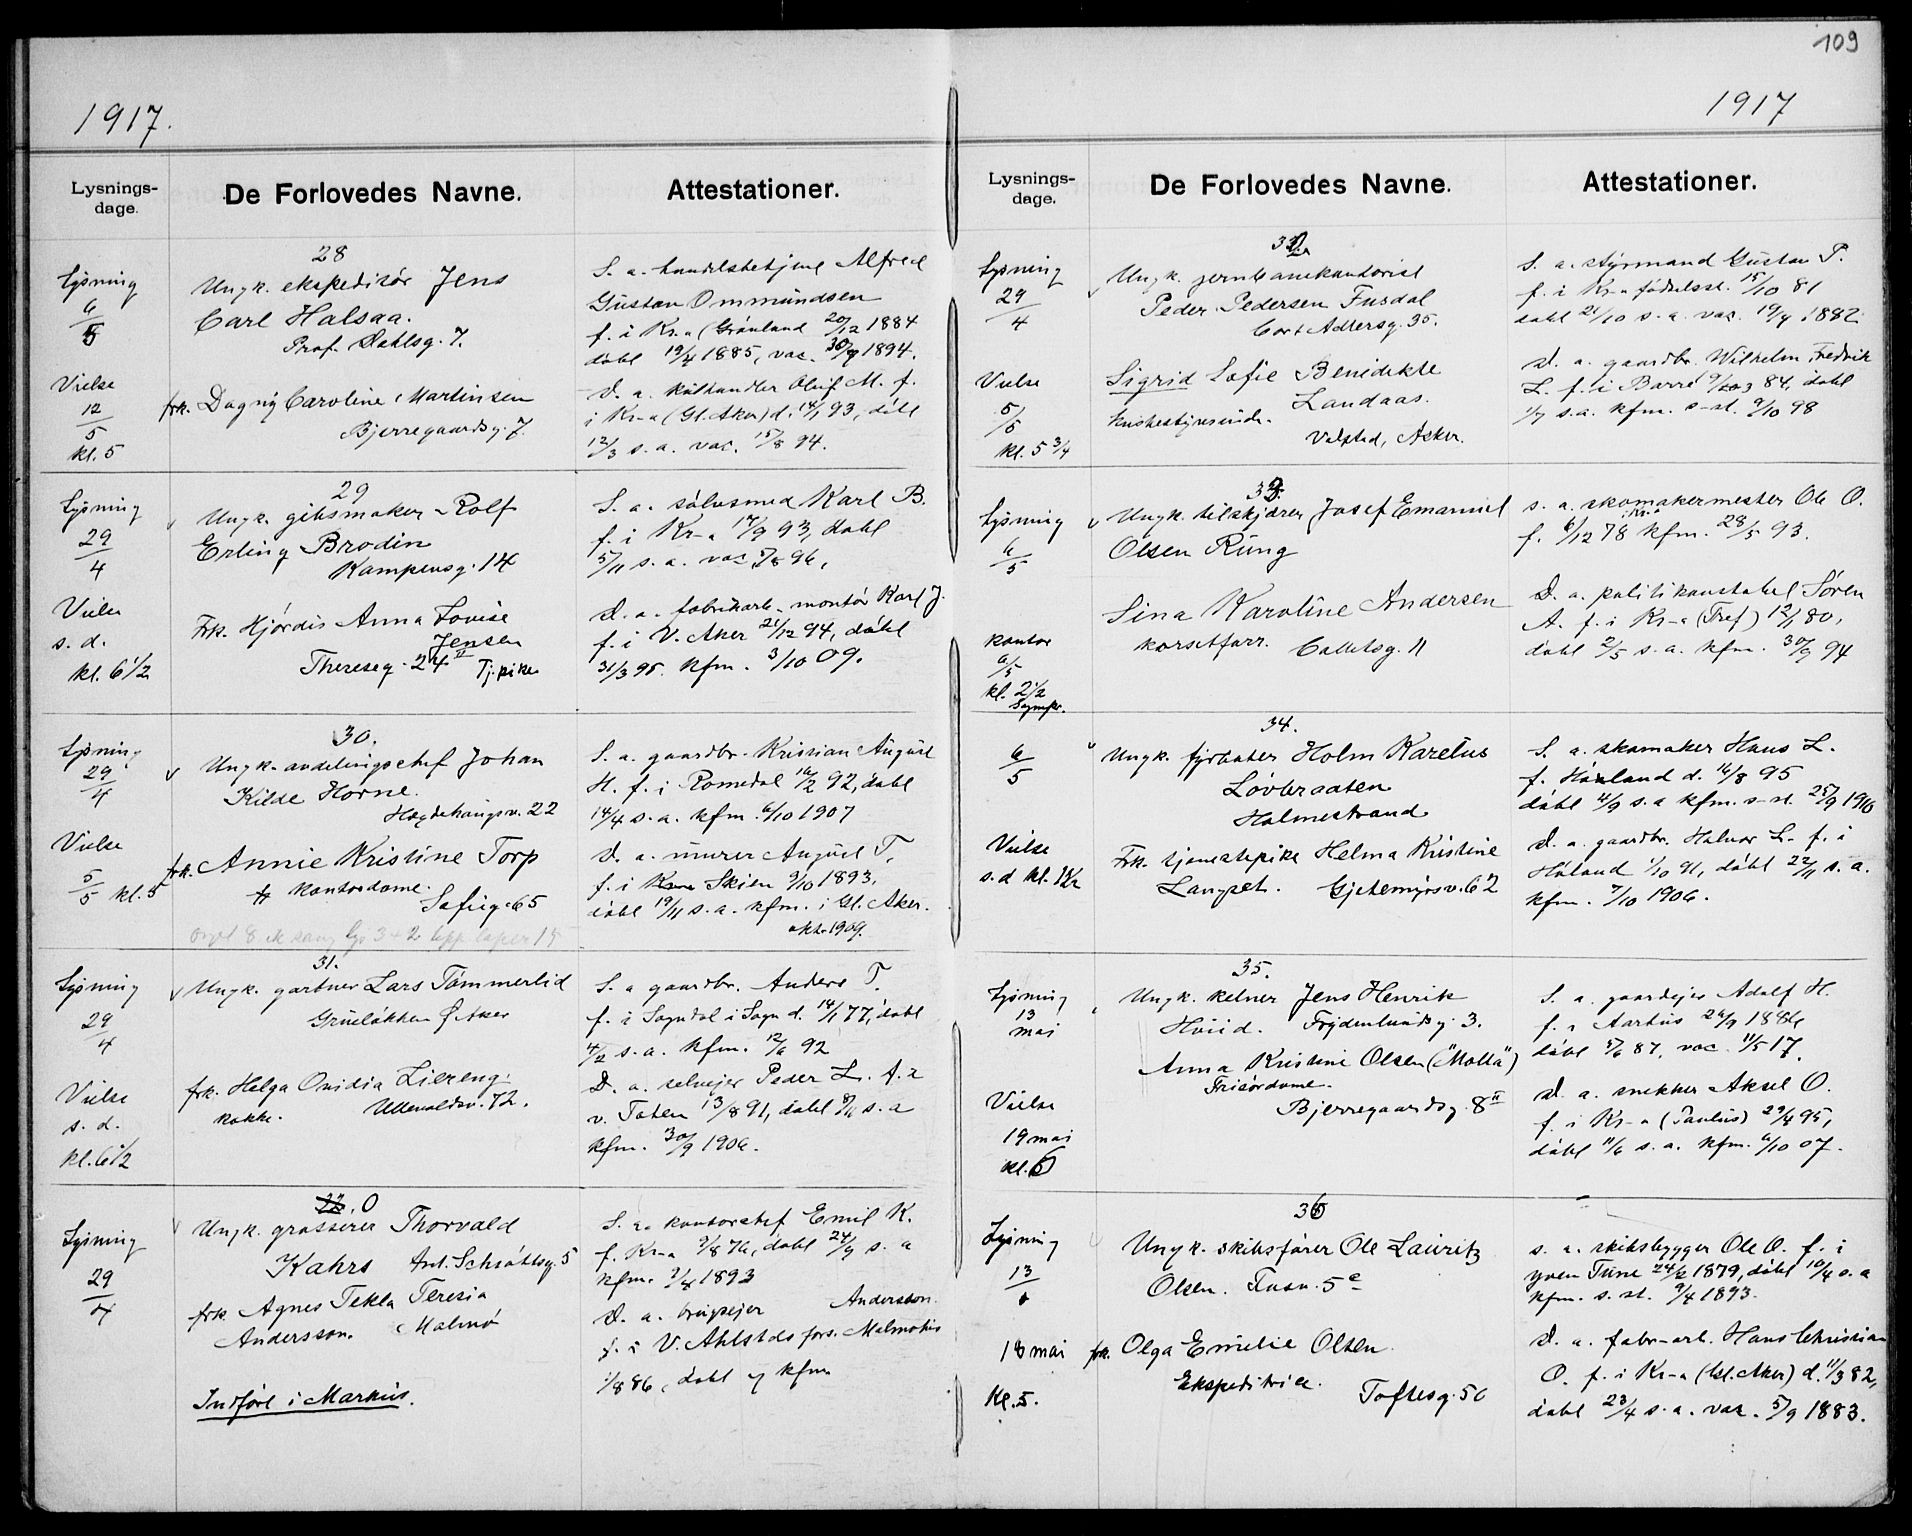 109
1917.
Lysnings-
dage.
De Forlovedes Navne.
Attestationer.
28
Lysning
6/5
Ungk. ekspeditør Jens
Carl Halsaa.
Prof. Dahlsg. 7.
S. a. handelsbetjent Alfred
Gustav Ommundsen
f. i Kr-a (Grønland 20/12 1884
døbt 19/4 1885, vac. 30/9 1894.
Vielse
12/5
kl. 5
frk. Dagny Caroline Martinsen
Bjerregaardsg. 7.
D. a. kulhandler Oluf M. f.
i Kr-a (Gl. Aker) d. 14/1 93, døbt
12/3 s. a. vac. 15/8 94.
29
Lysning
29/4
Ungk. gibsmaker Rolf
Erling Brodin
Kampensg. 14
S. a. sølvsmed Karl B.
f. i Kr-a 17/9 93, døbt
5/11 s. a. vac 5/8 96,
Vielse
s. d.
kl. 6 1/2
Frk. Hjørdis Anna Lovise
Jensen
Theresesg. 24 II Tj. pike
D. a. fabrikarb. montør Karl J.
f. i V. Aker 21/12 94, døbt
31/3 95. kfm. 3/10 09.
30.
Lysning
29/4
v Ungk. avdelingschef Johan
Kilde Horne.
Hegdehaugsv. 22
S. a. gaardbr. Kristian August
H. f. i Romedal 16/2 92, døbt
14/4 s. a. kfm. 6/10 1907
Vielse
5/5 kl. 5
frk. Annie Kristine Torp
kontordame.
Sofiig. 65
D. a. murer August T.
f. i Skien 9/10 1893,
døbt 19/11 s. a. kfm. i Gl. Aker.
okt. 1909.
31.
Lysning
29/4
v Ungk. gartner Lars Tømmerlid
Grueløkken Ø Aker
S. a gaardbr. Anders T.
f. i Sogndal i Sogn d. 14/1 77, døbt
4/2 s. a. kfm. 12/6 92
Vielse
s. d.
kl. 6 1/2
frk. Helga Ovidia Liereng.
kokke. Ullevaldsv. 72.
D. a. selvejer Peder L. f. i
v. Toten 13/8 91, døbt s. a
kfm. 30/9 1906.
O
Lysning
29/4
Ungk. grosserer Thorvald
Kahrs Ant. Schrøttsg. 5
S. a. kontorchef Emil K.
f. Kr-a 9/8 76, døbt 24/9 s. a
kfm. 1893
frk. Agnes Tekla Teresia
Andersson. Malmø
D. a. brugsejer Andersson.
f. i V. Ahlstds fors. Malmøhus
1/8 86, døbt og kfm
Indført i Markus.
1917
Lysnings-
dage.
De Forlovedes Navne.
Attestationer.
32
Lysning
29/4
Ungk. jernbanekontorist
Peder Pedersen Fusdal
Cort Adlersg. 35.
S. a. styrmand Gustav P.
f. i Kr-a fødselsst. 15/10 81
døbt 21/10 s. a. vac. 19/4 1882.
Vielse
5/5
kl. 5 3/4
Sigrid Sofie Benedikte
Landaas.
husbestyrerinde.
Valstad, Asker.
D. a. gaardbr. Wilhelm Fredrik
L. f. i Borre 84, døbt
1/7 s. a. kfm. s-st. 9/10 98
33.
Lysning
6/5
v Ungk. tilskjærer Josef Emanuel
Olsen Rung
s. a. skomakermester Ole O.
f. Kr-a 6/12 78 kfm. 28/5 93.
kontor
6/5
kl. 2 1/2
Sina Karoline Andersen
korsetforr. Colletsg. 11
D. a. politikonstabel Søren
A. f. i Kr-a (Tref) 12/1 80,
døbt 2/5 s. a. kfm. 30/9 94
34.
6/5
Ungk. fyrbøter Holm Karelius
Løvbraaten
Holmestrand
S. a. skomaker Hans L.
f. Høland d. 16/8 95
døbt 11/9 s. a kfm. s-st. 25/9 1910
Vielse
s. d kl.
Frk. tjenestepike Helma Kristine
Langset. Gjetemyrsv. 62
D. a. gaardbr. Halvor L. f. i
Høland 1/10 91, døbt 22/11 s. a.
kfm. 7/10 1906.
35.
Lysning
13
mai
Ungk. kelner Jens Henrik
Hviid. Frydenlundsg. 3.
S. a. gaardejer Adolf H.
f. i Aarhus 24/9 1886
døbt 5/6 87, vac. 11/5 17.
Vielse
19 mai
kl. 6
Anna Kristine Olsen ("Molla")
Frisørdame.
Bjerregaardsg. 8 II
D. a. snekker Aksel O.
f. i Kr-a (Paulus) 29/4 95,
døbt 11/6 s. a. kfm. 6/10 07.
36
Lysning
13
Ungk. skibsfører Ole Lauritz
Olsen. Fusv. 5 c
s. a. skibsbygger Ole O. f. i
yven Tune 24/2 1879, døbt 10/4 s. a
kfm. s. st. 9/4 1893.
18 mai
Kl. 5.
frk. Olga Emilie Olsen.
Ekspeditrice.
Toftesg. 50
D. a. fabr-arb. Hans Christian
O. f. i Kr-a (Gl. Aker) d. 11/3 82,
døbt 23/4 s. a. vac. 5/9 1883.